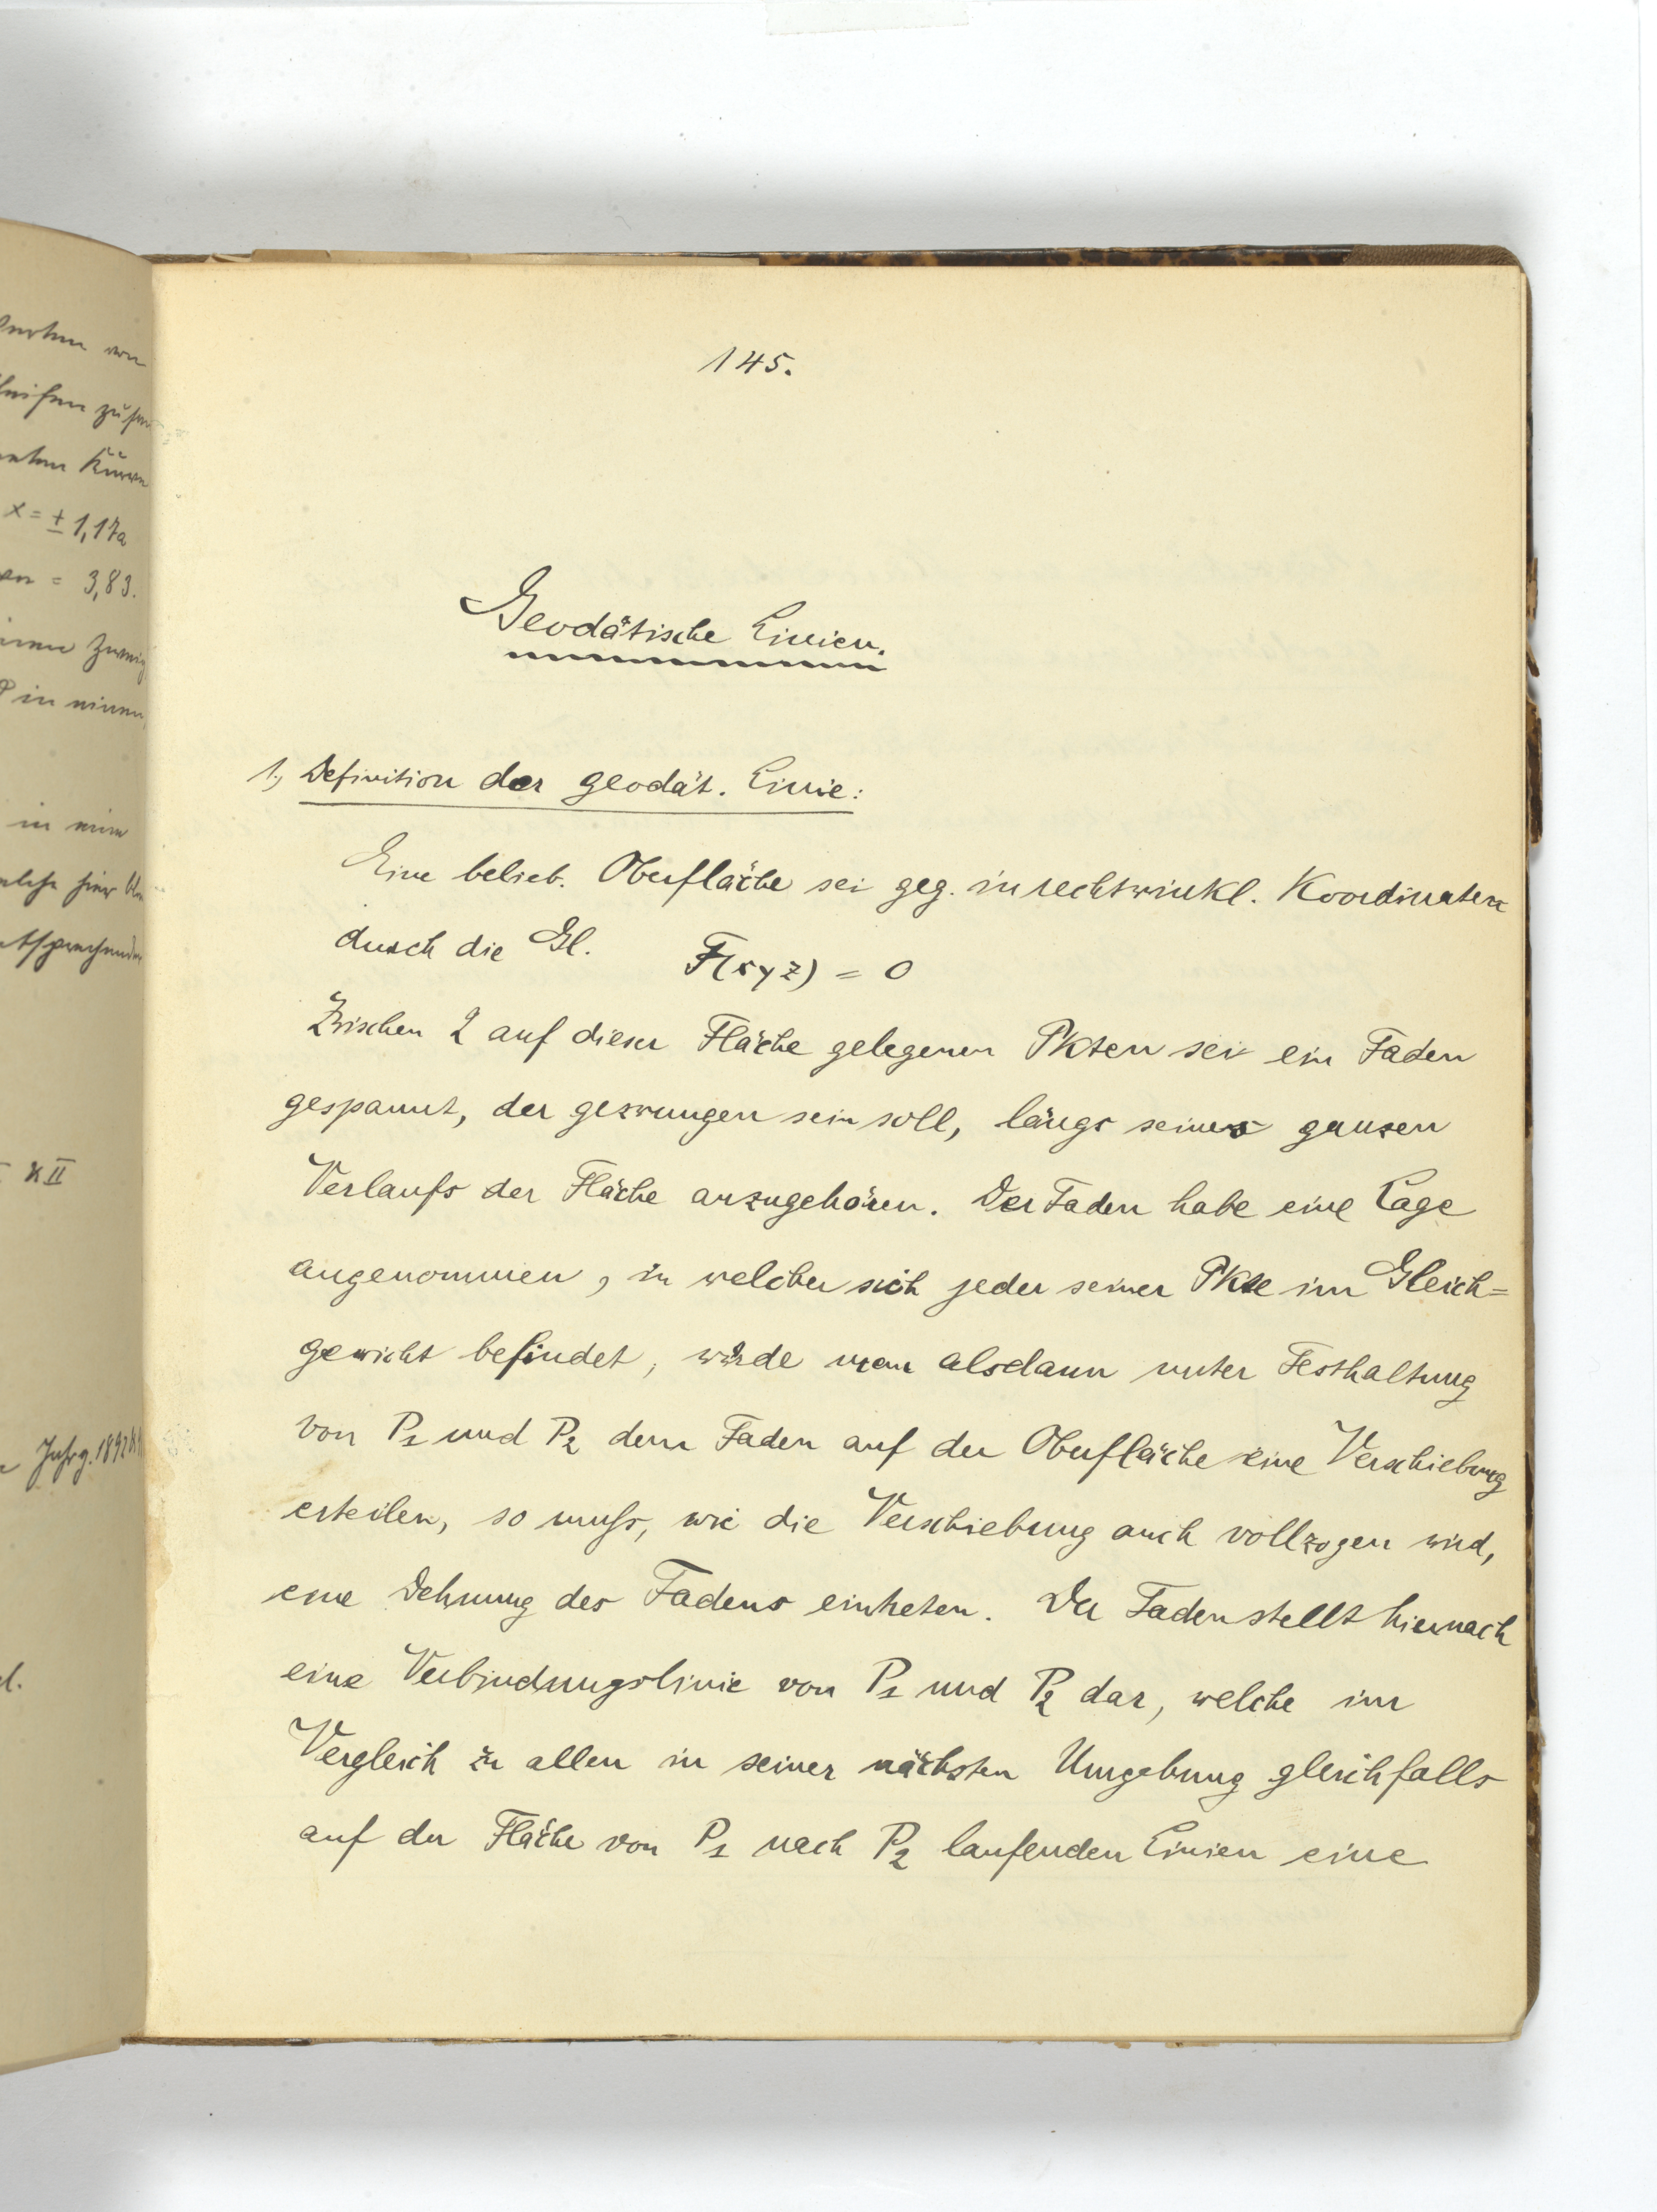 145.
Geodätische Linien.
1., Definition der geodät. Linie:
Eine belieb. Oberfläche sei geg. in rechtwinkl. Koordinaten
durch die Gl. F(xyz) = 0
Zwischen 2 auf dieser Fläche gelegenen Pkten sei ein Faden
gespannt, der gezwungen sein soll, längs seines ganzen
Verlaufs der Fläche anzugehören. Der Faden habe eine Lage
angenommen, in welcher sich jeder seiner Pkte im Gleich=
gewicht befindet, würde man alsdann unter Festhaltung
von P1 und P2 dem Faden auf der Oberfläche eine Verschiebung
erteilen, so muß, wie die Verschiebung auch vollzogen wird,
eine Dehnung des Fadens eintreten. Der Faden stellt hiernach
eine Verbindungslinie von P1 und P2 dar, welche im
Vergleich zu allen in seiner nächsten Umgebung gleichfalls
auf der Fläche von P1 nach P2 laufenden Linien eine
x = ± 1,17a
= 3,83.
in
XII
Jahrg. 1892